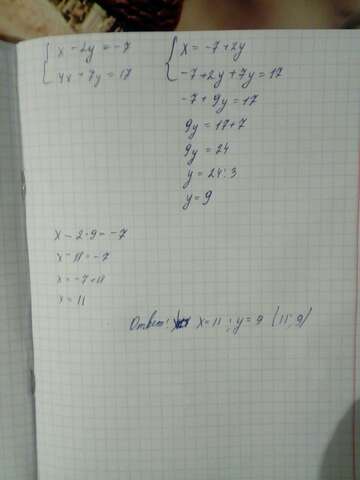 x - 2y = -7
4x + 7y = 17
x = -7 + 2y
-7 + 2y + 7y = 17
-7 + 9y = 17
9y = 17 + 7
9y = 24
y = 24 : 3
y = 9
x - 2 · 9 = -7
x - 11 = -7
x = -7 + 11
x = 11
Ответ: x = 11 ; y = 9 (11; 9)